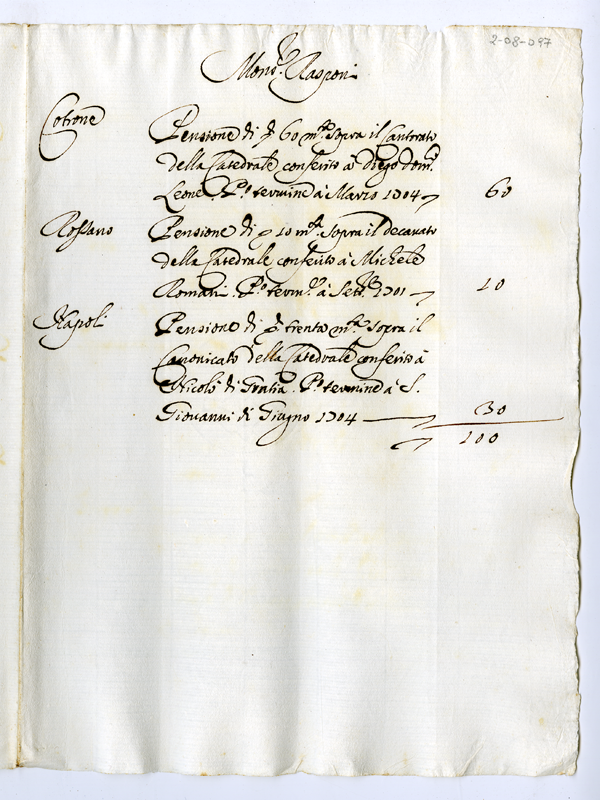 2-08-097
Mons.r Rasponi
Cotrone
Pensione di 60 m.ta sopra il Cantorato
della Catedrale conferito à Diego Dom.
Leone. P.o termine à Marzo 1704 60
Rossano
Pensione di 10 m.ta sopra il decanato
della Catedrale conferito à Michele
Romani. P.o term.e à Sett.re 1701 10
Napoli
Pensione di trenta m.ta sopra il
Canonicato della Catedrale conferito à
Nicolò di Gratia. P.o termine à S.
Giovanni di Giugno 1704 30
100